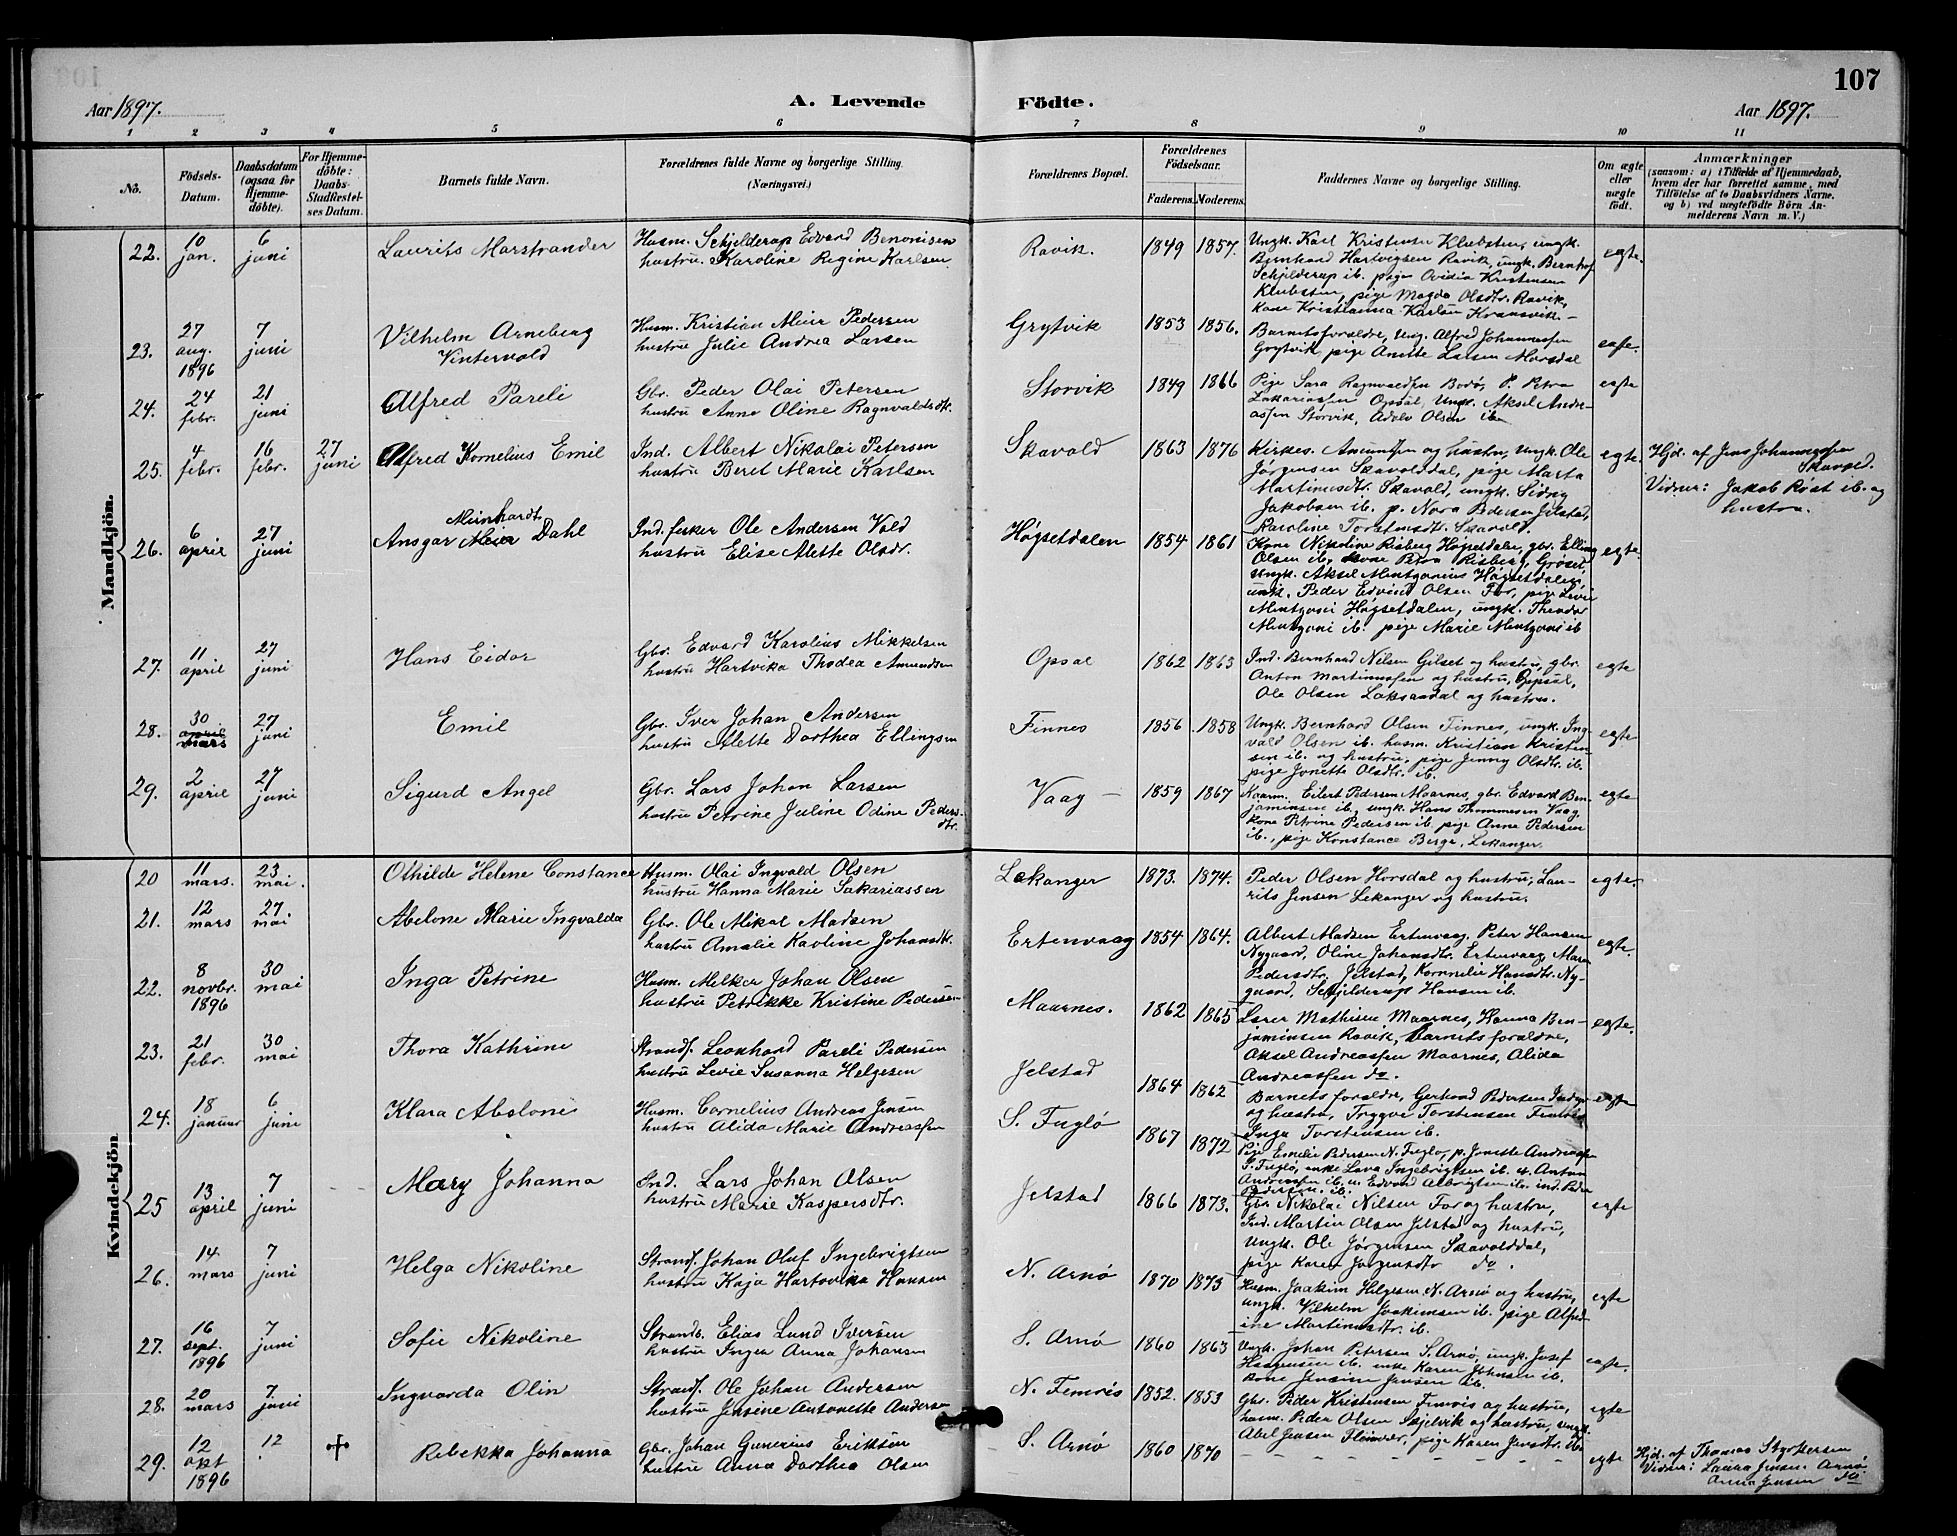 107
Aar 1897.
A. Levende
Födte.
Aar 1897.
1 2 3 4 5 6 7 8 9 10 11
No.
Födsels-
Datum.
Daabsdatum
(ogsaa for
Hjemme-
döbte).
For Hjemme-
döbte:
Daabs-
Stadfæstel-
ses Datum.
Barnets fulde Navn.
Forældrenes fulde Navne og borgerlige Stilling.
(Næringsvei.)
Forældrenes Bopæl.
Forældrenes
Födselsaar.
Faderens. Moderens.
Faddernes Navne og borgerlige Stilling.
Om ægte
eller
uægte
födt.
Anmærkninger
(saasom: a) i Tilfælde af Hjemmedaab,
hvem der har forrettet samme, med
Tilföielse af to Daabsvidners Navne,
og b) ved uægtefödte Börn An-
melderens Navn m. V.)
Mandkjön.
22. 10 jan. 6 juni Laurits Marstrander
Husm. Schjelderup Edvard Benonisen
hustru. Karoline Regine Karlsen
Ravik. 1849 1857.
Ungk. Karl Kristensen Klubsten, ungk.
Bernhard Hartvigsen Ravik, ungk. Bernhof
Schjelderup ib. pige Ovidia Kristensen
Klubsten, pige Magda Olsdtr. Ravik,
Kone Kristianna Karlsen
egte.
23. 27 aug. 1896 7 juni Vilhelm Arneberg
Vintervold
Husm. Kristian Meier Pedersen
hustru Julie Andrea Larsen
Grytvik 1853 1856.
Barnets forældre, Ung. Alfred Johannessen
Grytvik, pige Anette Larsen
egte.
24. 24 febr. 21 juni Alfred Pareli
Gbr. Peder Olai Petersen
hustru Anne Oline Ragnvaldsdtr.
Storvik 1849 1866
Pige Sara Ragnvaldsen Bodø, P. Petra
Zakariassen Opsal, Ungk. Aksel Andre-
assen Storvik, Adolv Olsen ib.
egte
25. 4 febr. 16 febr. 27 juni Alfred Kornelius Emil
Ind. Albert Nikolai Petersen
hustru Beret Marie Karlsen
Skavold 1863 1876
Kirkes. Amundsen og hustru, Ungk. Ole
Jørgensen Skavolddal, pige Marta
Martinusdtr. Skavold, ungk. Sidny
Jakobsen ib. p. Nora Pedersen Jelstad,
Karoline Torstensdtr. Skavold.
egte
Hjd. af Jens Johannessen
Vidner: Jakob Røst ib. og
hustru.
26. 6 april 27 juni Meinhardt
Ansgar Meier Dahl
Ind. fisker Ole Andersen Vold
hustru Elise Alette Olsdr.
Høgsetdalen 1854 1861
Kone Nikoline Risberg Høgsetdalen, gbr. Elling
Olsen ib. kone Petra Risberg, Grøset,
ungk. Aksel Mentzonius Høgsetdalen,
ungk. Peder Edvind Olsen For, pige Levie
Mentzoni Høgsetdalen, ungk. Theodor
Mentzoni ib. pige Marie Mentzoni ib
egte.
27. 11 april 27 juni Hans Eidor
Gbr. Edvard Karolius Mikkelsen
hustru Hartvika Thodea Amundsen
Opsal 1862 1863
Ind. Bernhard Nilsen Gilset og hustru, gbr.
Anton Martinussen og hustru, Opsal,
Ole Olsen Laksaadal og hustru.
egte
28. 30 april mars 27 juni Emil
Gbr. Iver Johan Andersen
hustru Alette Dorthea Ellingsen
Finnes 1856 1858
Ungk. Bernhard Olsen Finnes, ungk. Ing-
vald Olsen ib. husm. Kristian Kristen-
sen ib. og hustru, pige Jenny Olsdtr. ib.
pige Jonette Olsdtr. ib.
egte
29. 2 april 27 juni Sigurd Angel
Gbr. Lars Johan Larsen
hustru Petrine Juline Odine Peders-
dtr.
Vaag – 1859 1867
Eilert Pedersen Maarnes, gbr. Edvard Ben-
jaminsen ib. ungk. Hans Thommesen Vaag,
kone Petrine Pedersen ib. pige Anne Pedersen
ib., pige Konstance Berge, Lekanger.
egte
Kvindekjön
20 11 mars. 23 mai. Othilde Helene Constance
Husm. Olai Ingvald Olsen
hustru Hanna Marie Sakariassen
Lekanger 1873. 1874.
Peder Olsen Horsdal og hustru, Lau-
rits Jensen Lekanger og hustru.
egte.
21. 12 mars 27 mai Abelone Marie Ingvalda
Gbr. Ole Mikal Madsen
hustru Amalie Karoline Johansdtr.
Ertenvaag 1854 1864.
Albert Madsen Ertenvaag, Peter Hansen
Nygaard, Oline Johansdtr. Ertenvaag, Maren
Pedersdtr. Jelstad, Kornnelie Hansdtr. Ny-
gaard, Schjelderup Hansen ib.
egte.
22. 8 novbr. 1896 30 mai Inga Petrine
Husm. Melker Johan Olsen
hustru Petrikke Kristine Pedersen
Maarnes. 1862 1865
Lærer Mathisen Maarnes, Hanna Ben-
jaminsen Ravik, Barnets forældre,
Aksel Andreassen Maarnes, Alida
Andreassen do.
egte.
23. 21 febr. 30 mai Thora Kathrine
Strands. Leonhard Pareli Pedersen
hustru Levie Susanna Helgesen
Jelstad 1864 1862
Barnets forældre, Gerhard Pedersen
og hustru, Tryggve Torstensen
Inga Torstensen ib.
egte
24. 18 januar 6 juni Klara Abelone
Husm. Cornelius Andreas Jensen
hustru Alida Marie Andreassen
S. Fuglø 1867 1872
Pige Emelie Pedersen N. Fuglø, p. Jonette Andreassen
S. Fuglø, enke Lava Ingebrigtsen ib. u. Anton
Andreassen ib. u. Edvard Albrigtsen ib. ind. Peder
Pedersen. ib.
25 13 april 7 juni Mary Johanna
Ind. Lars Johan Olsen
hustru Marie Kaspersdtr.
Jelstad 1866 1873.
Gbr. Nikolai Nilsen For og hustru,
Ind. Martin Olsen Jelstad og hustru,
Ungk. Ole Jørgensen Skavolddal,
pige Karen Jørgensdtr do.
egte
26. 14 mars 7 juni Helga Nikoline
Strands. Johan Oluf Ingebrigtsen
hustru Kaja Hartovika Hansen
N. Arnø 1870 1875
Husm. Joakim Helgesen N. Arnø og hustru,
ungk. Vilhelm Joakimsen ib. pige Alfed-
ine Martinusdtr. ib.
egte
27. 16 sept. 1896 7 juni Sofie Nikoline
Strands. Elias Lund Iversen
hustru Inger Anna Johansen
S. Arnø 1860 1863
Ungk. Johan Petersen S. Arnø, ungk. Josef
Haagensen ib. enke Karen Johnsen ib.
kone Jensine Jensen ib.
egte.
28. 20 mars 7. juni Ingvarda Olin
Strands. Ole Johan Andersen
hustru Jensine Antonette Andersen
N. Femris 1852. 1853
Gbr. Peder Kristensen Femris og hustru,
husm. Peder Olsen Skjelvik og hustru, ungk.
Abel Jensen, pige Karen Jensdtr. do.
egte
29. 12 okt 1896 12 Rebekka Johanna
Gbr. Johan Gunerius Eriksen
hustru Anna Dorthea Olsen
S. Arnø 1860 1870
– – – – – – – –
egte
Hjd. af Thomas Styrkersen
Vidner: Laura Jensen Arnø
Anna Jensen do